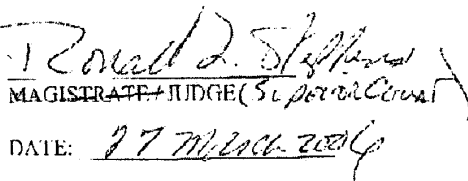 Ronald L. Stephens
MAGISTRATE / JUDGE (Superior Court)
DATE: 27 March 2006